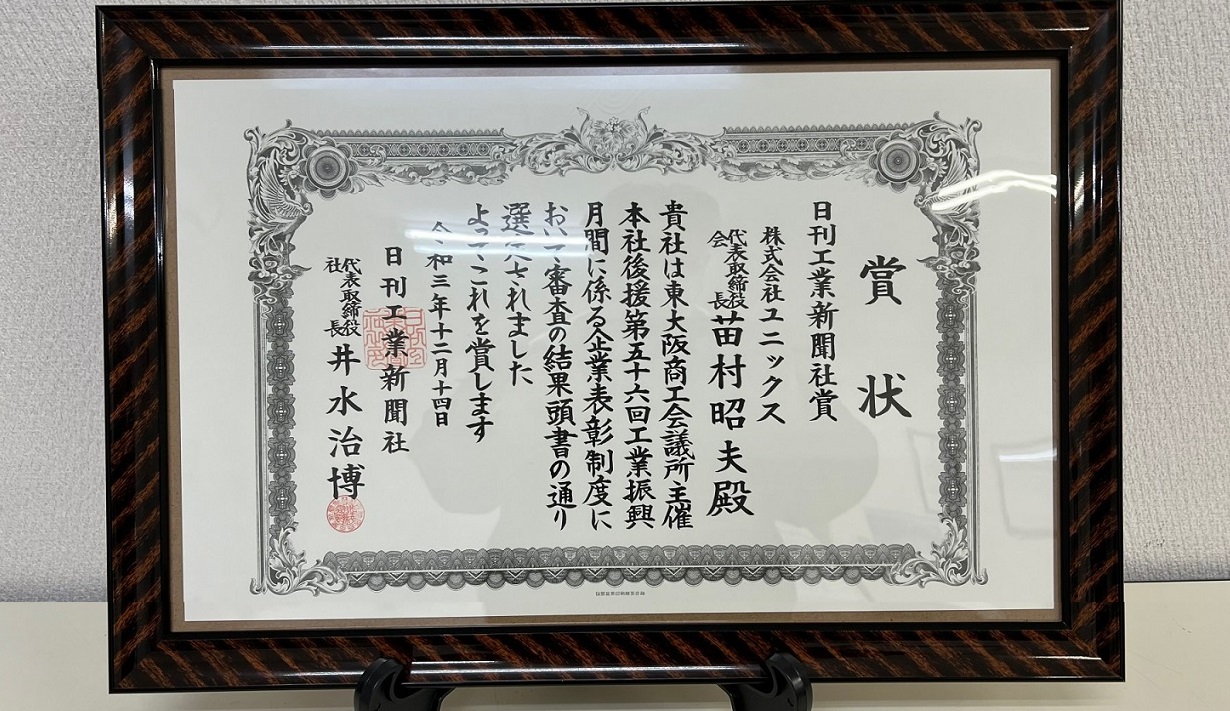 賞状
日刊工業新聞社賞
株式会社ユニックス
代表取締役会長 苗村昭夫殿
貴社は東大阪商工会議所主催
本社後援第五十六回工業振興
月間に係る企業表彰制度に
おいて審査の結果頭書の通り
選定されました
よってこれを賞します
令和三年十二月十四日
日刊工業新聞社
代表取締役社長 井水治博